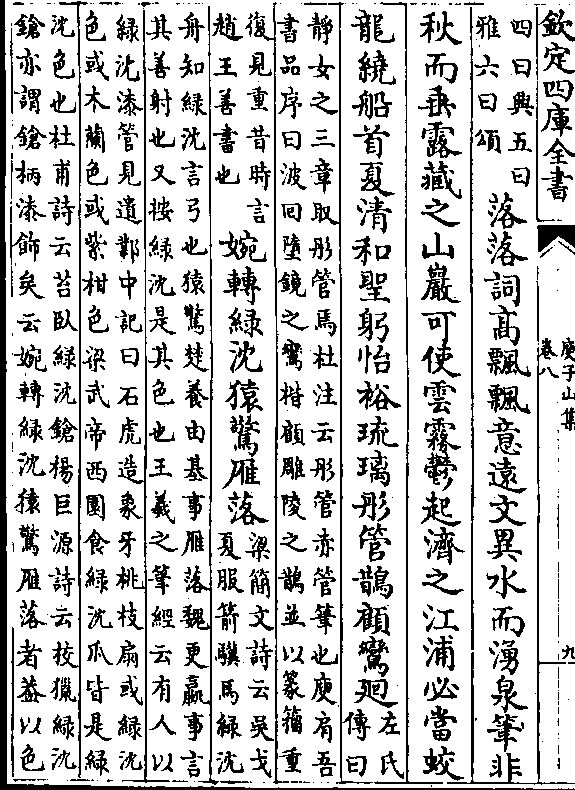 欽定四庫全書
庾子山集
卷八
九
四曰興五曰
雅六曰頌
落落詞髙飄飄意遠文異水而湧泉筆非
秋而垂露藏之山巖可使雲霧鬱起濟之江浦必當蛟
龍繞船首夏清和聖躬怡裕琉璃彤管鵲顧鸞廻
左氏
傳曰
靜女之三章取彤管焉杜注云彤管赤管筆也庾肩吾
書品序曰波回墮鏡之鸞楷顧雕陵之鵲並以篆籀重
復見重昔時言
趙王善書也
婉轉緑沈猿驚雁落
梁簡文詩云吳戈
夏服箭驥馬緑沈
舟知緑沈言弓也猿驚楚養由基事雁落魏更羸事言
其善射也又按緑沈是其色也王羲之筆經云有人以
緑沈漆管見遺鄴中記曰石虎造象牙桃枝扇或緑沈
色或木蘭色或紫柑色梁武帝西園食緑沈爪皆是緑
沈色也杜甫詩云苔卧緑沈鎗楊巨源詩云校獵緑沈
鎗亦謂鎗柄漆飾矣云婉轉緑沈猿驚雁落者葢以色